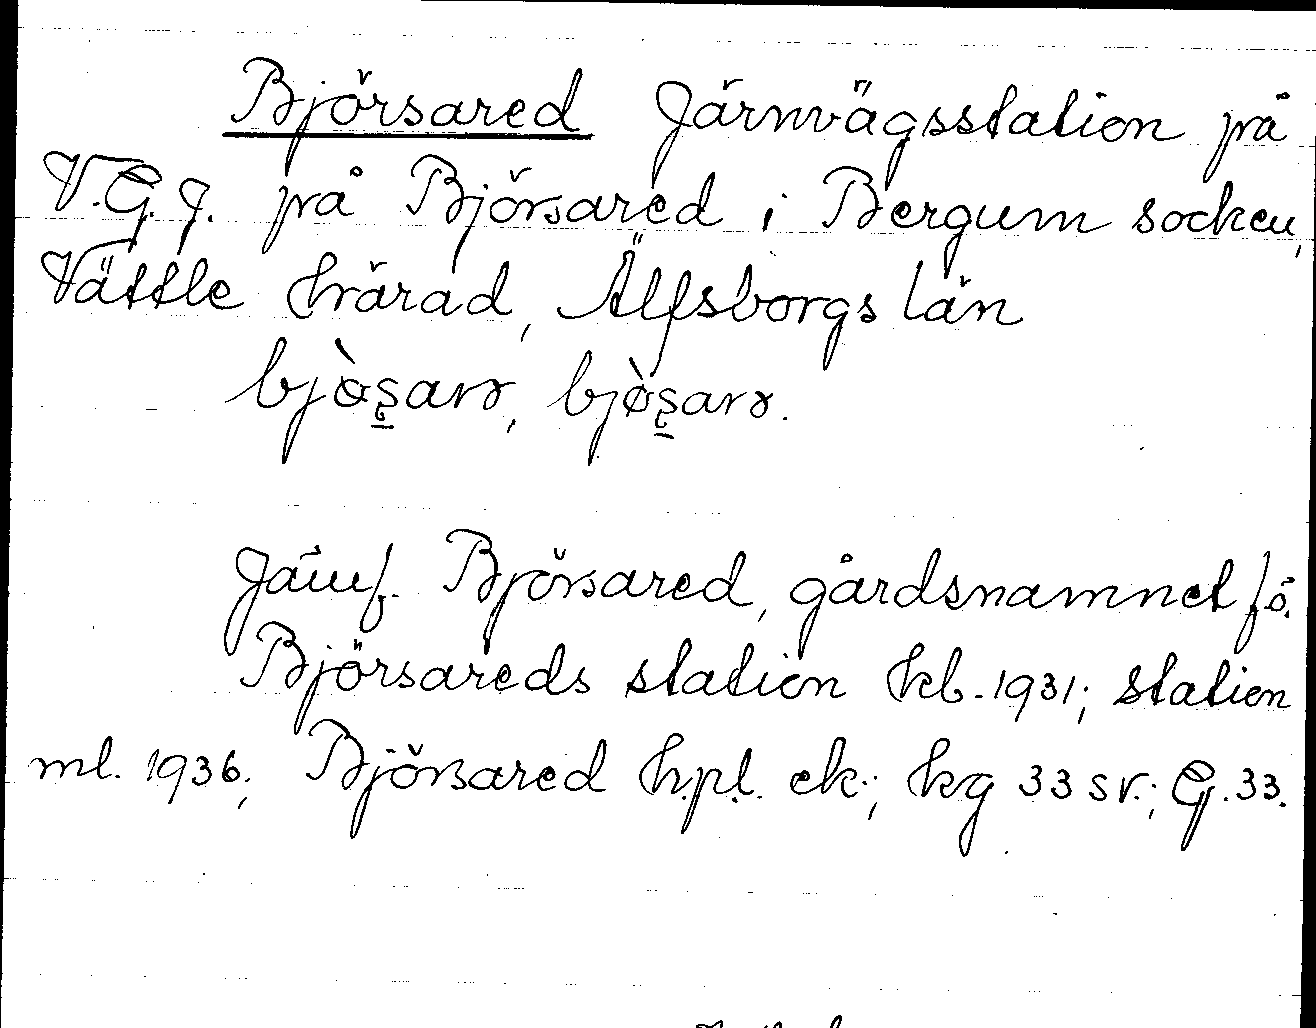 Björsared Järnvägsstation på
V.G.J. på Björsared i Bergum socken,
Vättle härad, Älfsborgs län
bjòʂarə, bjø̀ʂarə.
Jämf. Björsared, gårdsnamnet fö.
Björsareds station hb. 1931; station
ml. 1936; Björsared hpl. ek.; kg 33 sv.; G. 33.